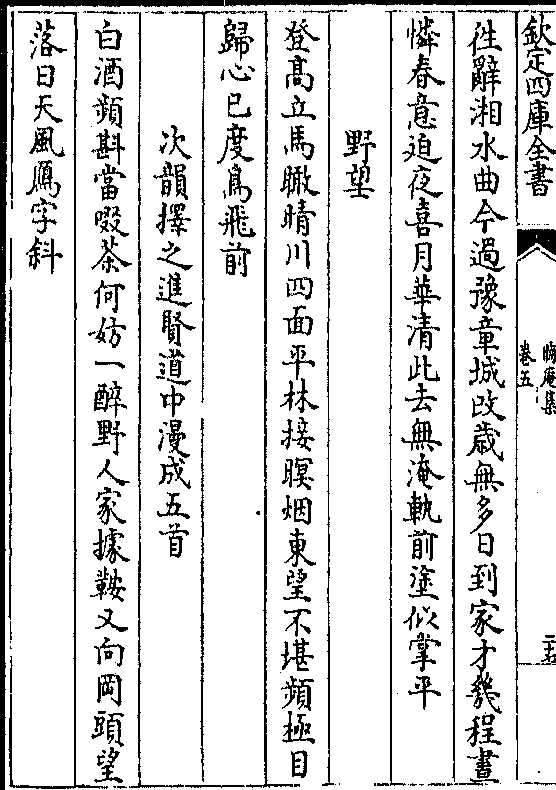 欽定四庫全書
晦庵集
卷五
二十七
徃辭湘水曲今過豫章城改歲無多日到家才幾程晝
憐春意迫夜喜月華清此去無淹軌前塗似掌平
野望
登高立馬瞰晴川四面平林接暝烟東望不堪頻極目
歸心已度鳥飛前
次韻擇之進賢道中漫成五首
白酒頻斟當啜茶何妨一醉野人家據鞍又向岡頭望
落日天風鴈字斜